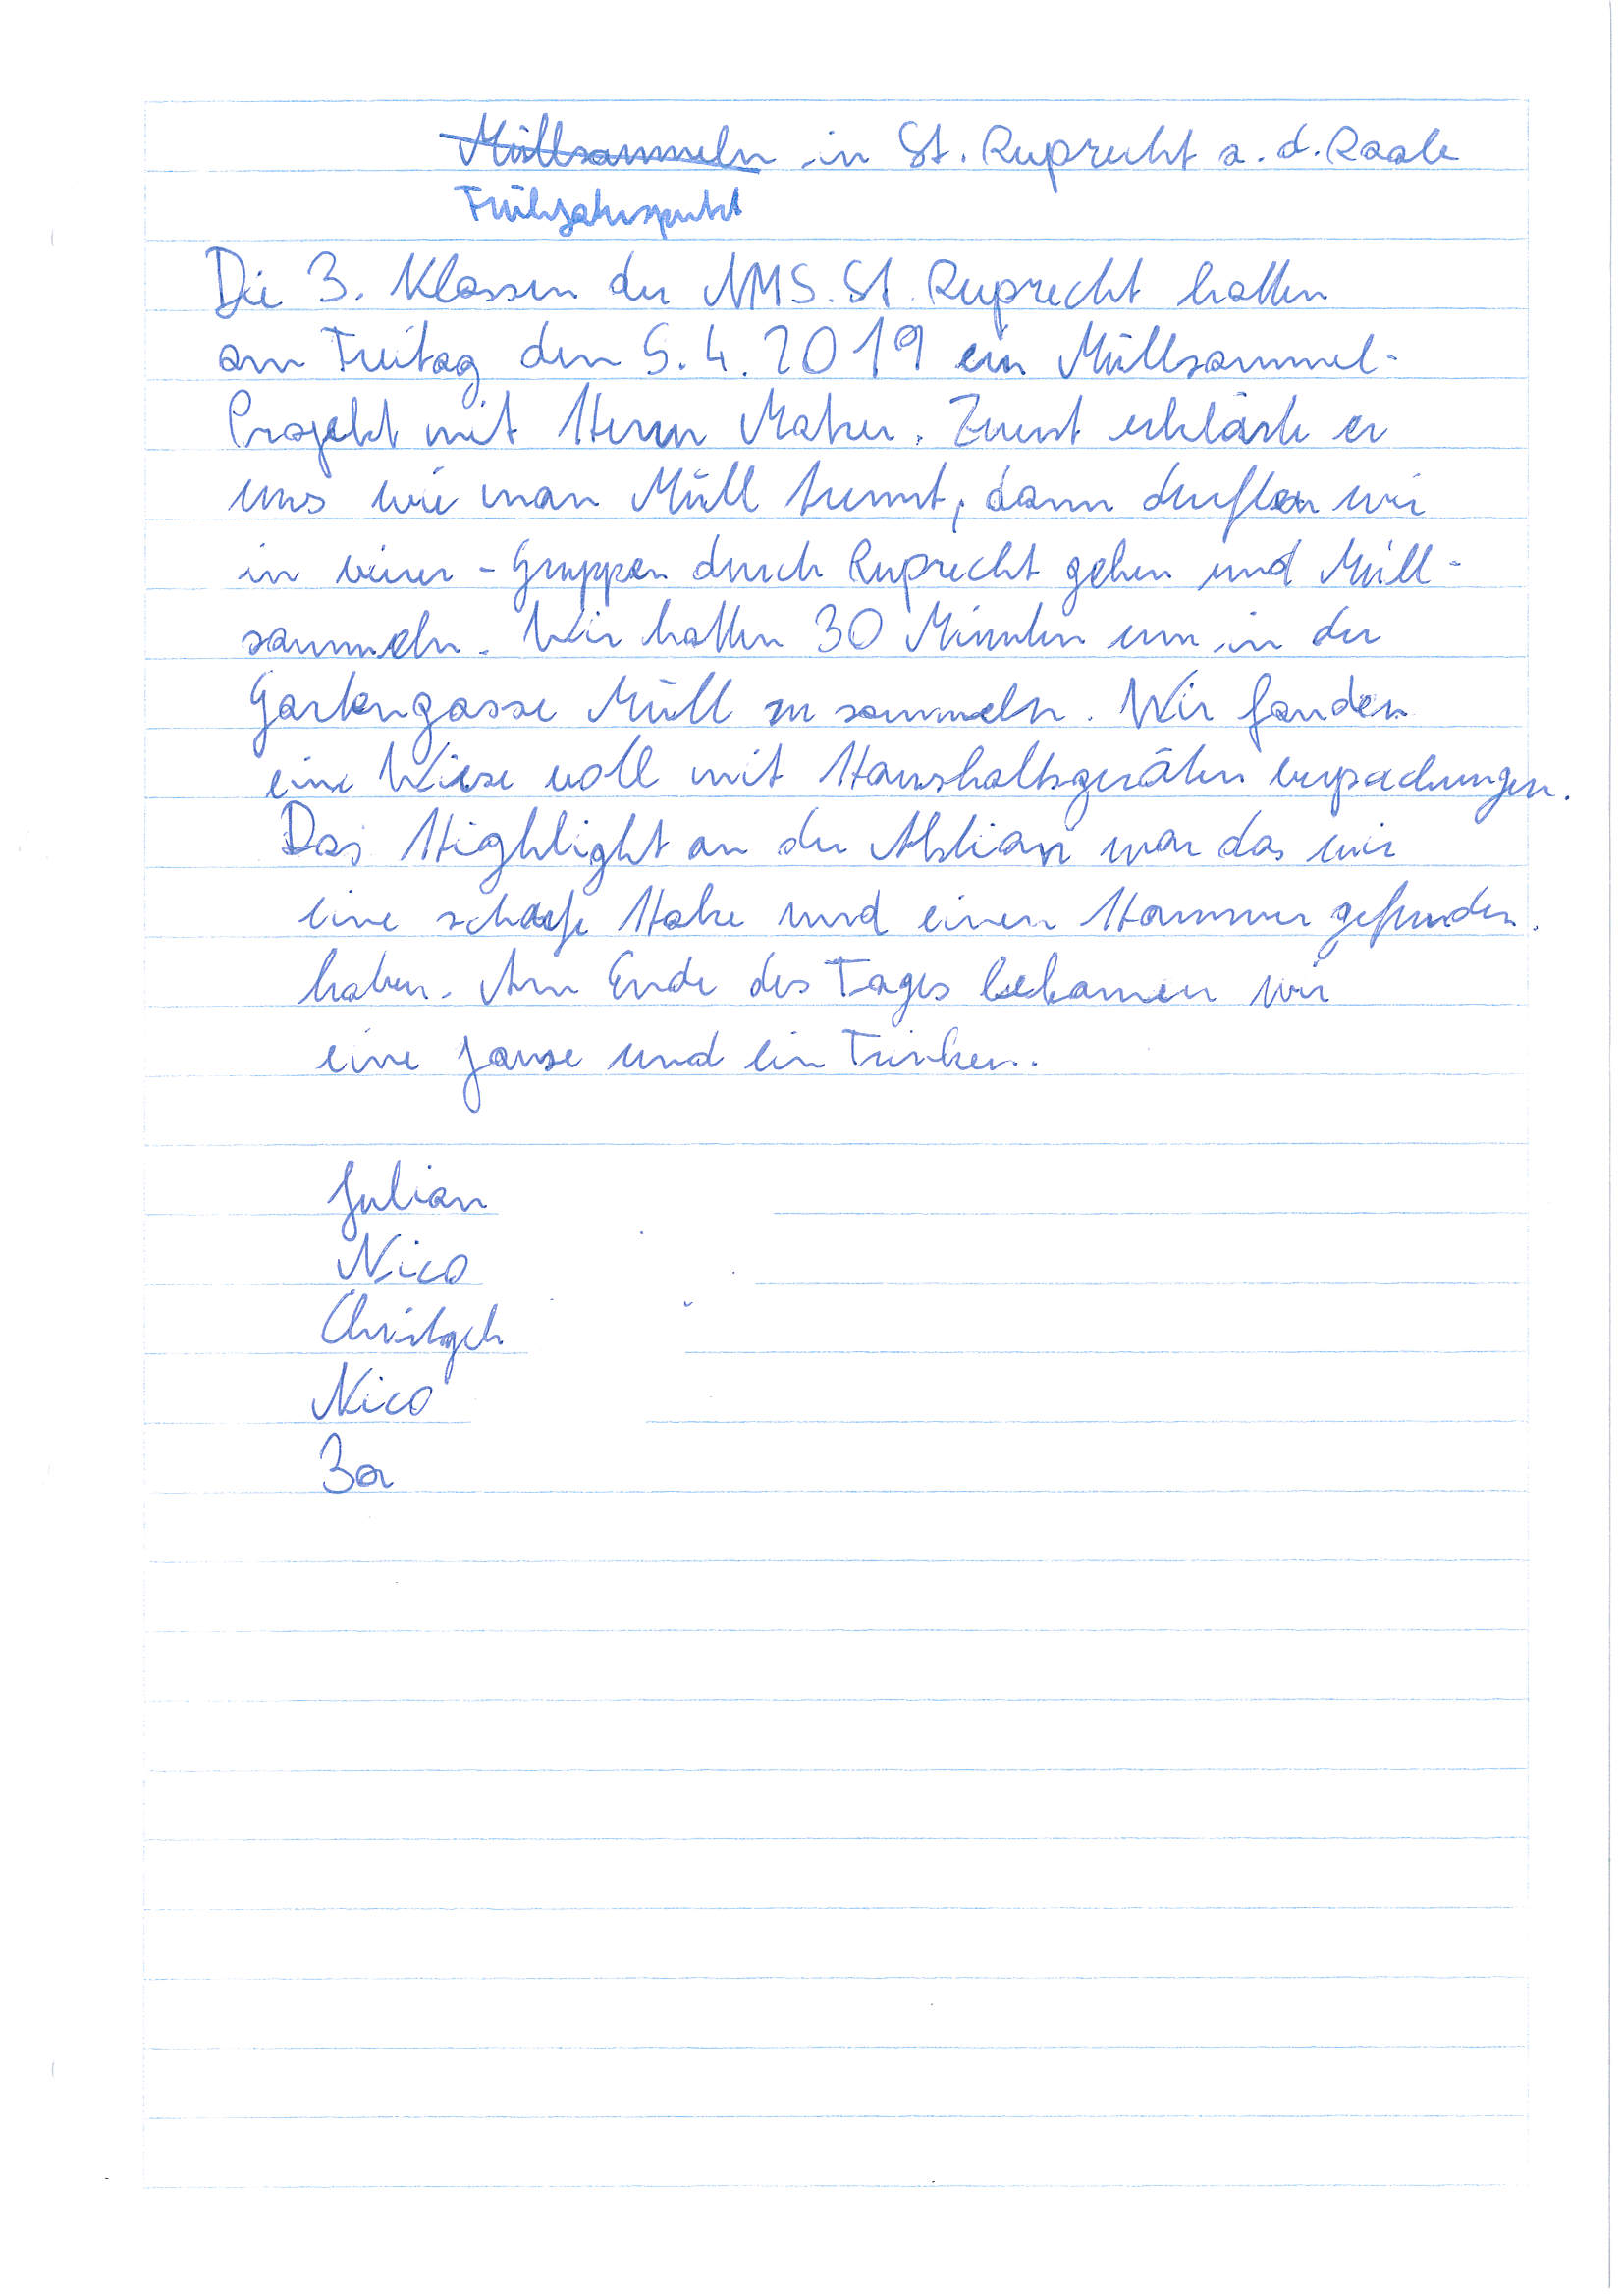 Müllsammeln in St. Ruprecht a. d. Raab
Frühjahrsputz
Die 3. Klassen der NMS. St. Ruprecht hatten
am Freitag den 5.4.2019 ein Müllsammel-
Projekt mit Herrn. Zuerst erklärte er
uns wie man Müll trennt, dann durften wir
in vierer - Gruppen durch Ruprecht gehen und Müll-
sammeln. Wir hatten 30 Minuten um in der
Gartengasse Müll zu sammeln. Wir fanden
eine Wiese voll mit Haushaltsgeräten verpackungen.
Das Highlight an der Aktion war das wir
eine scharfe Hake und einen Hammer gefunden.
haben. Am Ende des Tages bekamen wir
eine Jause und ein Trinken.
Julian
Nico
Christoph
Nico
3a